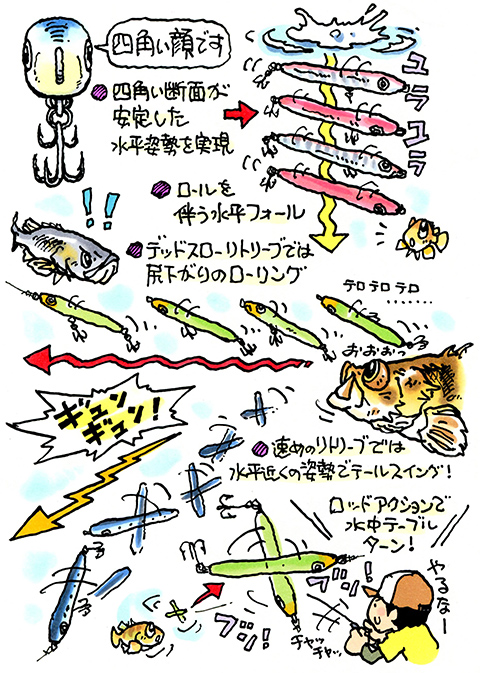 四角い顔です
四角い断面が
安定した
水平姿勢を実現
ユラ
ユラ
ロールを
伴う水平フォール
!!
デッドスローリトリーブでは
尻下がりのローリング
テロテロテロ
……
おおおっ
ギュン
ギュン!
速めのリトリーブでは
水平近くの姿勢でテールスイング!
ロッドアクションで
水中テーブル
ターン!
ブン!
ブン!
チャッ
チャッ
やるなー